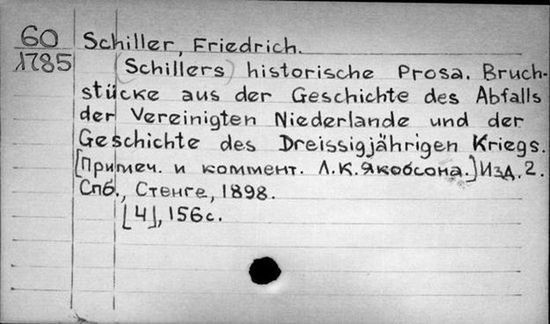 60 Schiller, Friedrich.
1785 (Schillers) historische Prosa. Bruch-
stücke aus der Geschichte des Abfalls
der Vereinigten Niederlande und der
Geschichte des Dreissigjährigen Kriegs.
[Примеч. и коммент. Л.К.Якобсона.] Изд. 2.
Спб., Стенге, 1898.
[4], 156 с.